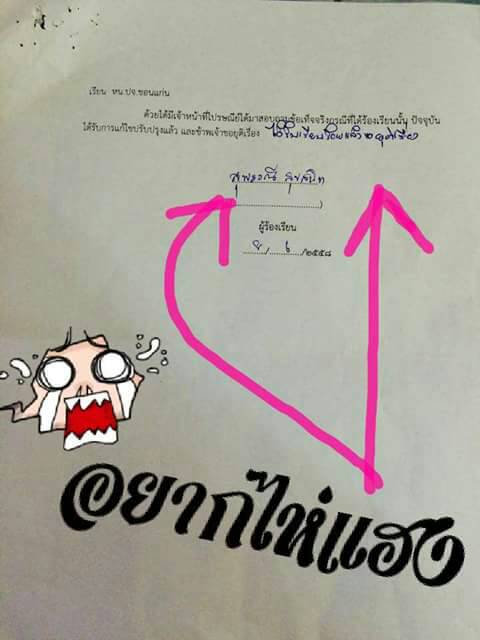 เรียน หน.ปจ.ขอนแก่น
ด้วยได้มีเจ้าหน้าที่ไปรษณีย์ได้มาสอบถามข้อเท็จจริงกรณีที่ได้ร้องเรียนนั้น ปัจจุบัน
ได้รับการแก้ไขปรับปรุงแล้ว และข้าพเจ้าขอยุติเรื่อง ได้รับเรียบร้อยแล้ว
ผู้ร้องเรียน
/๒๕๕๘
อยากไห่แฮง